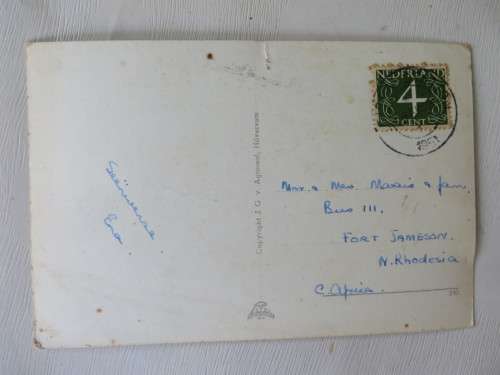 NEDERLAND
4
CENT
1951
Seënwense
Ena.
Copyright J. G. v. Agtmaal, Hilversum
Mnr. & Mev. Marais & fam.
Bus 111.
FORT JAMESON.
N. Rhodesia
C. Africa.